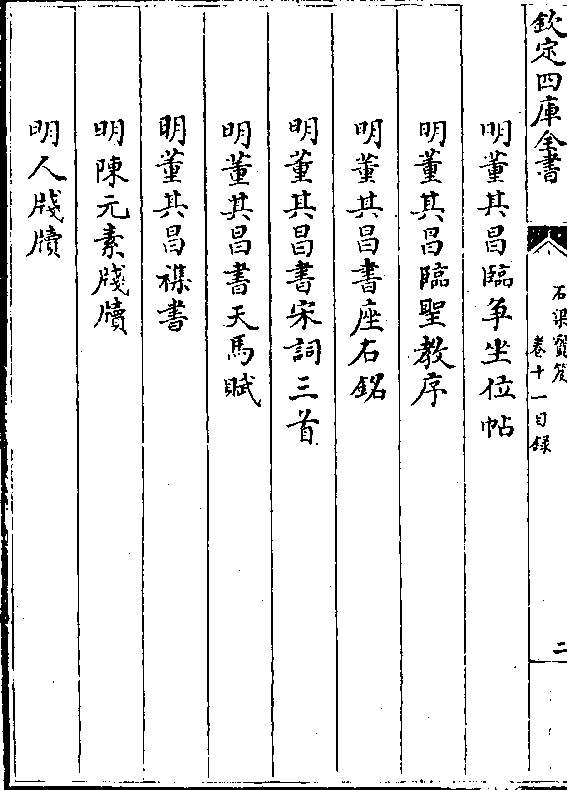 欽定四庫全書
石渠寶笈
卷十一目錄
二
明董其昌臨争坐位帖
明董其昌臨聖教序
明董其昌書座右銘
明董其昌書宋詞三首
明董其昌書天馬賦
明董其昌襍書
明陳元素牋牘
明人牋牘